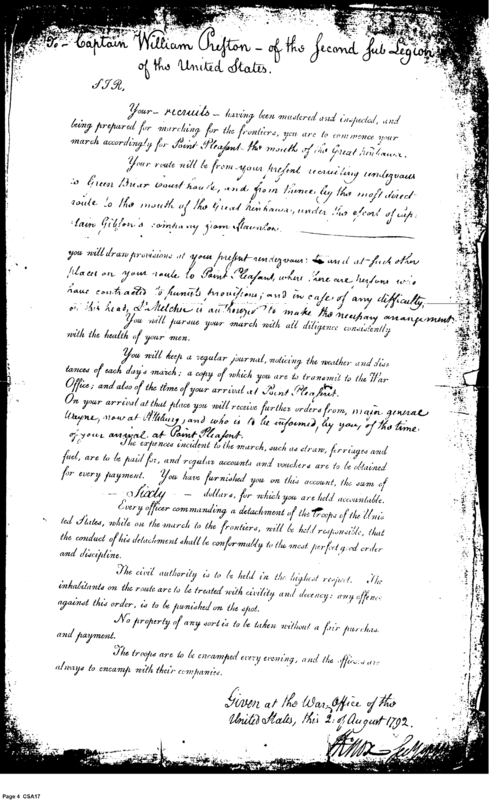 To - Captain William Preston - of the Second Sub Legion
of the United States.
SIR,
Your - recruits - having been mustered and inspected, and
being prepared for marching for the frontiers, you are to commence your
march accordingly for Point Pleasant the mouth of the Great Kenhawa.
Your route will be from your present recruiting rendezvous
to Green Briar Court house, and from thence by the most direct
route to the mouth of the Great Kenhawa, under the escort of Cap-
tain Gibson's company from Staunton.
you will draw provisions at your present rendezvous: and at such other
places on your route to Point Pleasant, where there are persons who
have contracted to furnish provisions; and in case of any difficulty,
on this head, is authorized to make the necessary arrangement.
You will pursue your march with all diligence consistently
with the health of your men.
You will keep a regular journal, noticing the weather and dis
tances of each day's march; a copy of which you are to transmit to the War
Office; and also of the time of your arrival at Point Pleasant.
On your arrival at that place you will receive further orders from, major general
Wayne, now at Pittsburg, and who is to be informed, by you, of the time
of your arrival at Point Pleasant.
The expences incident to the march, such as straw, ferriages and
fuel, are to be paid for, and regular accounts and vouchers are to be obtained
for every payment. You have furnished you on this account, the sum of
- Sixty - dollars, for which you are held accountable.
Every officer commanding a detachment of the Troops of the Uni
ted States, while on the march to the frontiers, will be held responsible, that
the conduct of his detachment shall be conformably to the most perfect good order
and discipline.
The civil authority is to be held in the highest respect. The
inhabitants on the route are to be treated with civility and decency: any offence
against this order, is to be punished on the spot.
No property of any sort is to be taken without a fair purchase
and payment.
The troops are to be encamped every evening, and the officers are
always to encamp with their companies.
Given at the War Office of the
United States, this 2 of August 1792.
HKnox
Page 4 CSA17